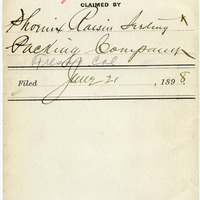 CLAIMED BY
Phœnix Raisin Seeding
Packing Company
Fresno Cal
Filed June 21, 1898.